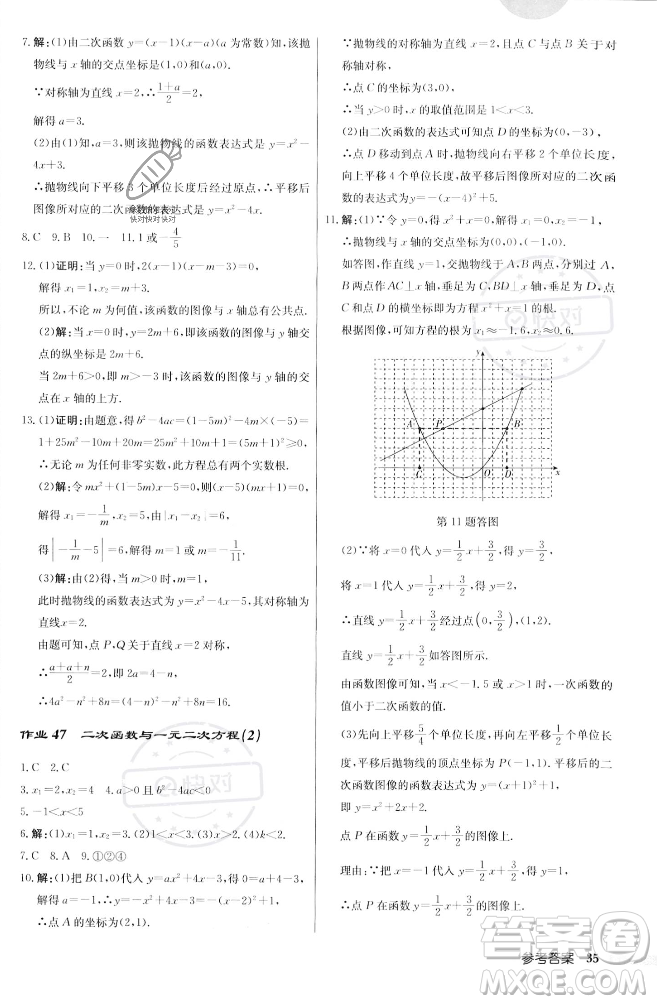 7.解:(1)由二次函数 y=(x-1)(x-a)(a为常数)知,该抛
物线与 x 轴的交点坐标是(1,0)和(a,0).
∵对称轴为直线 x=2,∴(1+a)/2=2,
解得 a=3.
(2)由(1)知,a=3,则该抛物线的函数表达式是 y=x²-
4x+3.
∵抛物线向下平移3个单位长度后经过原点,∴平移后
图像所对应的二次函数的表达式是 y=x²-4x.
8.C 9.B 10.一 11.1或-4/5
12.(1)证明:当 y=0时,2(x-1)(x-m-3)=0,
解得 x₁=1,x₂=m+3.
所以,不论 m 为何值,该函数的图像与 x 轴总有公共点.
(2)解:当 x=0时,y=2m+6,即该函数的图像与 y 轴交
点的纵坐标是2m+6.
当2m+6>0,即 m>-3时,该函数的图像与 y 轴的交
点在 x 轴的上方.
13.(1)证明:由题意,得 b²-4ac=(1-5m)²-4m×(-5)=
1+25m²-10m+20m=25m²+10m+1=(5m+1)²≥0,
∴无论 m 为任何非零实数,此方程总有两个实数根.
(2)解:令 mx²+(1-5m)x-5=0,
解得 x₁=-1/m,x₂=5.由|x₁-x₂|=6,
得|-1/m-5|=6,解得 m=1或 m=-1/11.
(3)解:由(2)得,当 m>0时,m=1,
此时抛物线的函数表达式为 y=x²-4x-5,其对称轴为
直线x=2.
由题可知,点 P,Q 关于直线 x=2对称,
∴(a+a+n)/2=2,即2a=4-n,
∴4a²-n²+8n=(4-n)²-n²+8n=16.
作业 47 二次函数与一元二次方程(2)
1.C 2.C
3.x₁=-2,x₂=1 4.a>0
5.-1<x<5
6.解:(1)x₁=1,x₂=3.(2)1<x<3.(3)x>2.(4)k<2.
7.C 8.A 9.①②④
10.解:(1)把 B(1,0)代入 y=ax²+4x-3,得0=a+4-3,
解得 a=-1,∴y=-x²+4x-3=-(x-2)²+1,
∴点 A 的坐标为(2,1).
∵抛物线的对称轴为直线 x=2,且点 C 与点 B 关于对
称轴对称,
∴点 C 的坐标为(3,0),
∴当 y>0时,x 的取值范围是1<x<3.
(2)由二次函数的表达式可知点 D 的坐标为(0,-3),
∴点 D 移动到点 A 时,抛物线向右平移2个单位长度,
向上平移4个单位长度,则平移后图像所对应的二次函
数的表达式为 y=-(x-4)²+5.
11.解:(1)∵令 y=0,得 x²+x=0,解得 x₁=0,x₂=-1,
∴抛物线与 x 轴的交点坐标为(0,0),(-1,0).
如答图,作直线 y=1,交抛物线于 A,B 两点,分别过 A,
B两点作AC⊥x 轴,垂足为C,BD⊥x 轴,垂足为 D,点
C和点 D 的横坐标即为方程的根.
根据图像,可知方程的根为 x₁≈-1.6,x₂≈0.6.
y
A
P
B
C
O
D
x
第11题答图
(2)∵将 x=0代入 y=1/2x+3/2,得 y=3/2,
将 x=1代入 y=1/2x+3/2,得 y=2,
∴直线 y=1/2x+3/2经过点(0,3/2),(1,2).
直线 y=1/2x+3/2如答图所示.
由函数图像可知,当 x<-1.5或 x>1时,一次函数的值小于二次
函数的值.
(3)先向上平移5/4个单位长度,再向左平移1/2个单位长度,
平移后抛物线的顶点坐标为(-1,1).平移后图像的二
次函数图像的表达式为 y=(x+1)²+1,
即 y=x²+2x+2.
点 P 在函数 y=1/2x+3/2的图像上.
理由:∵把 x=-1代入 y=1/2x+3/2,得 y=1,
∴点 P 在函数 y=1/2x+3/2的图像上.
参考答案 35
快对
答案圈
MXQE.COM